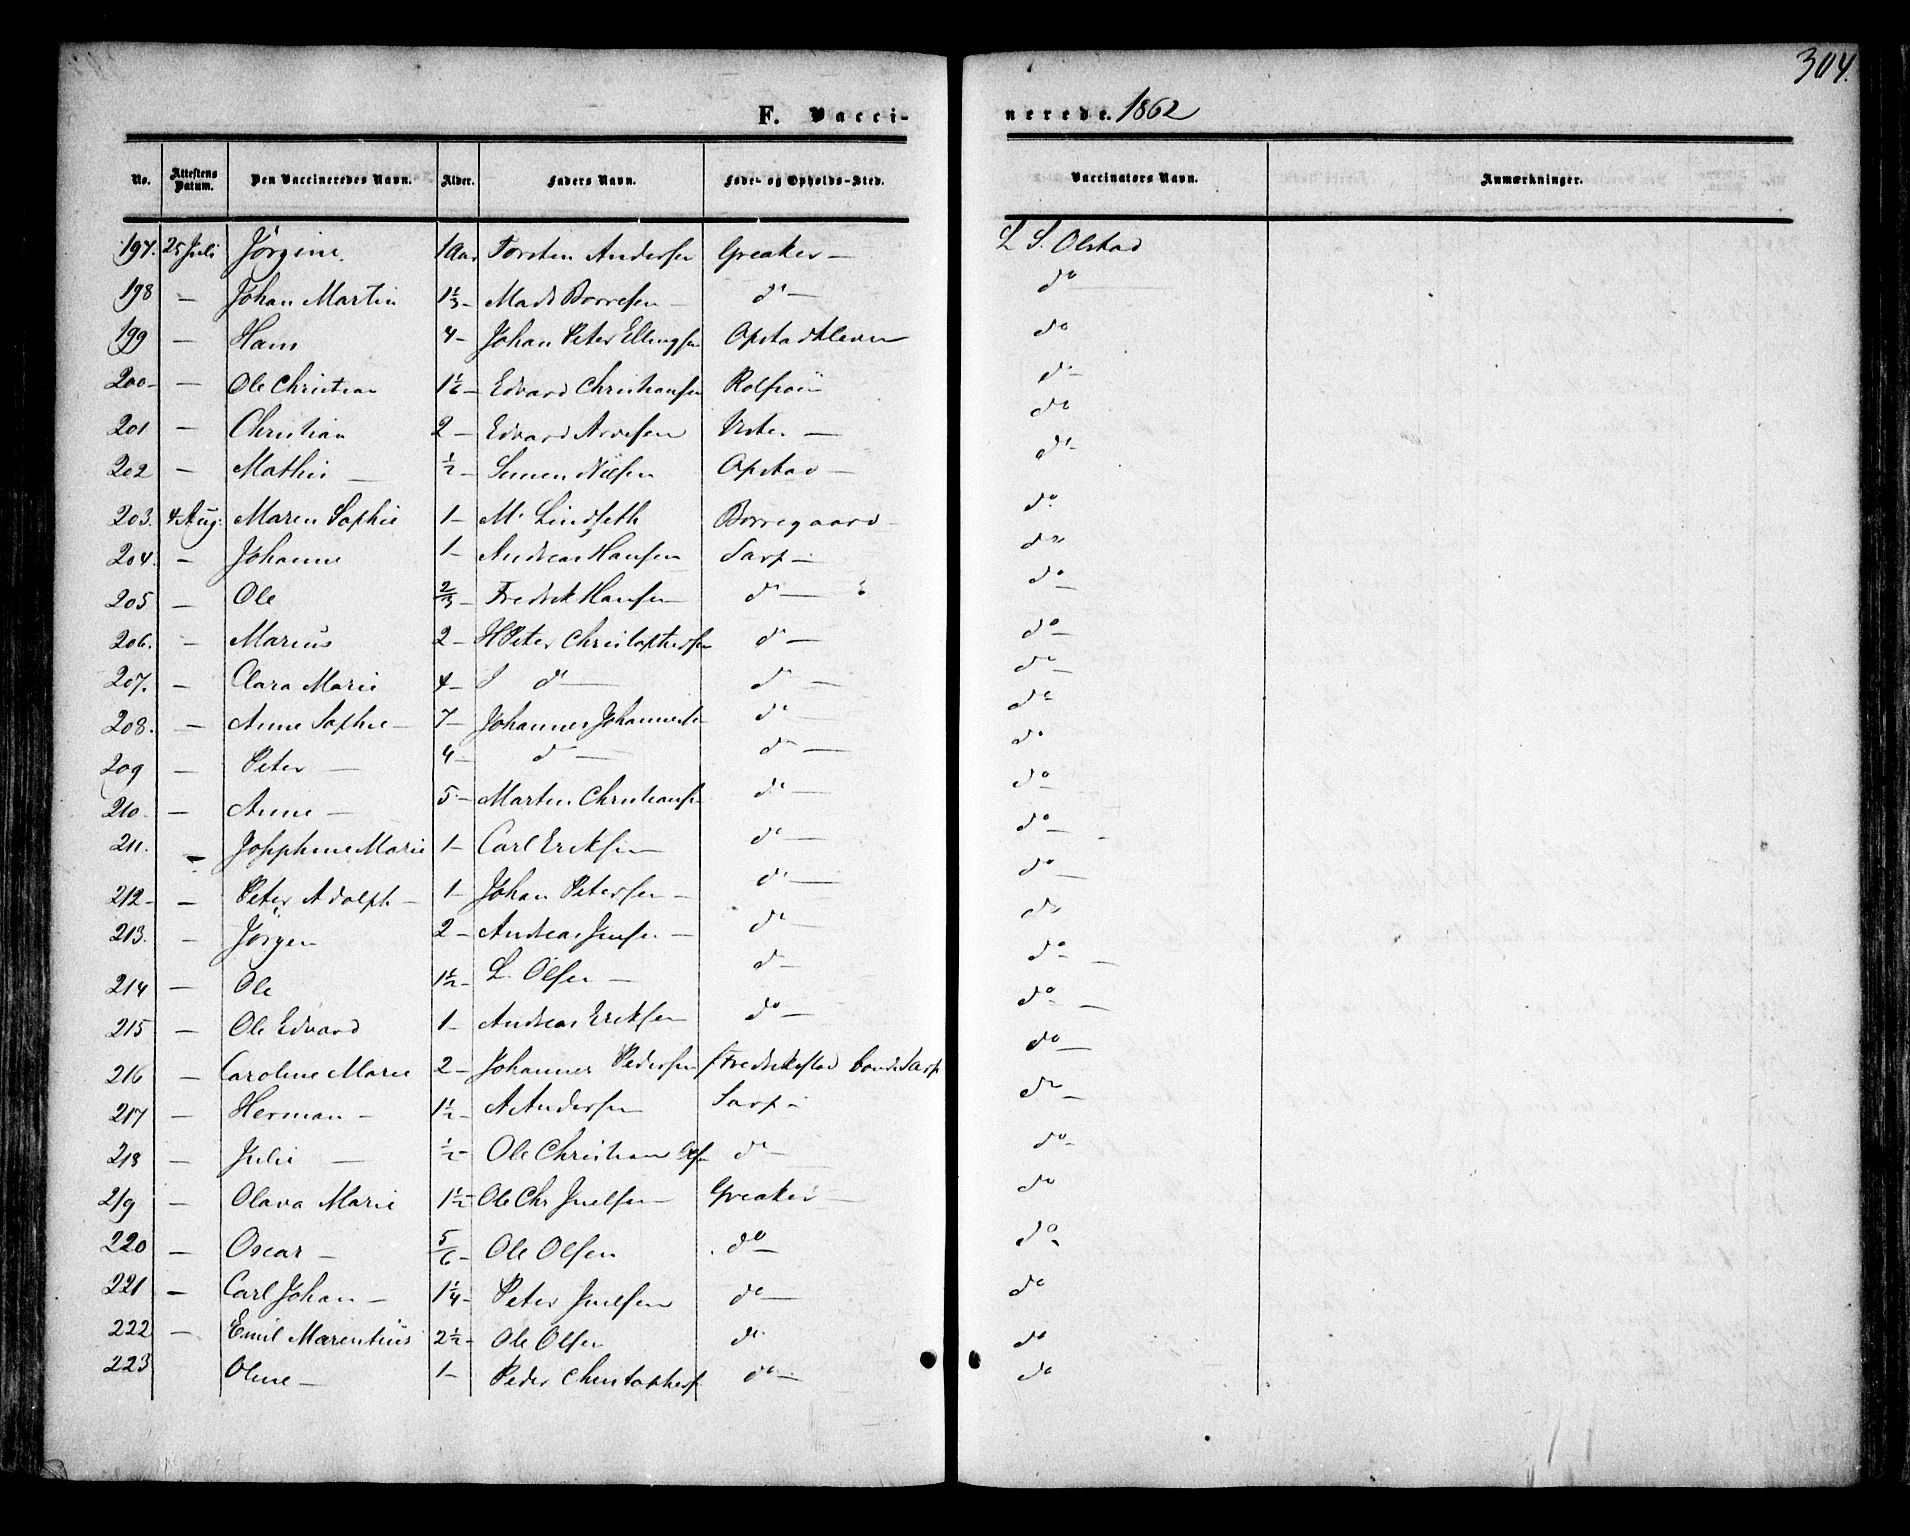 304.
F. Vacci- nerede. 1862
No. Attestens Datum. Den Vaccineredes Navn. Alder. Faders Navn. Føde- og Opholds-Sted. Vaccinators Navn. Anmærkninger.
197. 25 Juli Jørgine. 1 Aar Torsten Andersen Greaker — L. S. Olstad
198 — Johan Martin 1 1/3 — Mads Borresen — do — do
199 — Hans 4 — Johan Peter Ellingsen Opstadkleven do
200 — — Ole Christian 1 1/2 — Edvard Christiansen Rolfsøen do —
201 — Christian 2 — Edvard Arvesen — do
202 — Mathis — 1/2 — Simen Nilsen Opstad — do —
203. 4 Aug. Maren Sophie 1 — M. Lindseth Borregaard — do
204. — Johanne 1 — Andreas Hansen Sarp — do
205 — Ole 2/3 — Fredrik Hansen do — do —
206. — Marius 2 — H Peter Christophersen do — do —
207. — Clara Marie 4 — do — do — do —
208. — Anne Sophie — 7 — Johannes Johannesen do — do
209 — Peter — 4 — do — do — do
210. — Anne — 5 — Martin Christiansen do — do —
211. — Josephine Marie 1 — Carl Eriksen do — do —
212 — — Peter Adolph — 1 — Johan Petersen — do — do —
213. — Jørgen 2 — Andreas Jensen — do — do
214 — Ole 1 1/2 — L. Olsen — do — do —
215 — Ole Edvard 1 — Andreas Eriksen do — do —
216 — Caroline Marie 2 — Johannes Pedersen f. Fredrikstad boende Sarp do —
217 — Herman — 1 1/2 — A Andersen Sarp — do —
218 — Julie — 1/2 — Ole Christian Olsen do — do —
219 — Olava Marie 1 1/2 — Ole Chr Juelsen — Greaker — do
220 — Oscar — 5/6 — Ole Olsen do — do
221 — Carl Johan — 1 1/4 — Peter Juelsen do — do
222 — Emil Marentius 2 1/2 — Ole Olsen do do
223 Oline — 1 — Peder Christophers. do — do